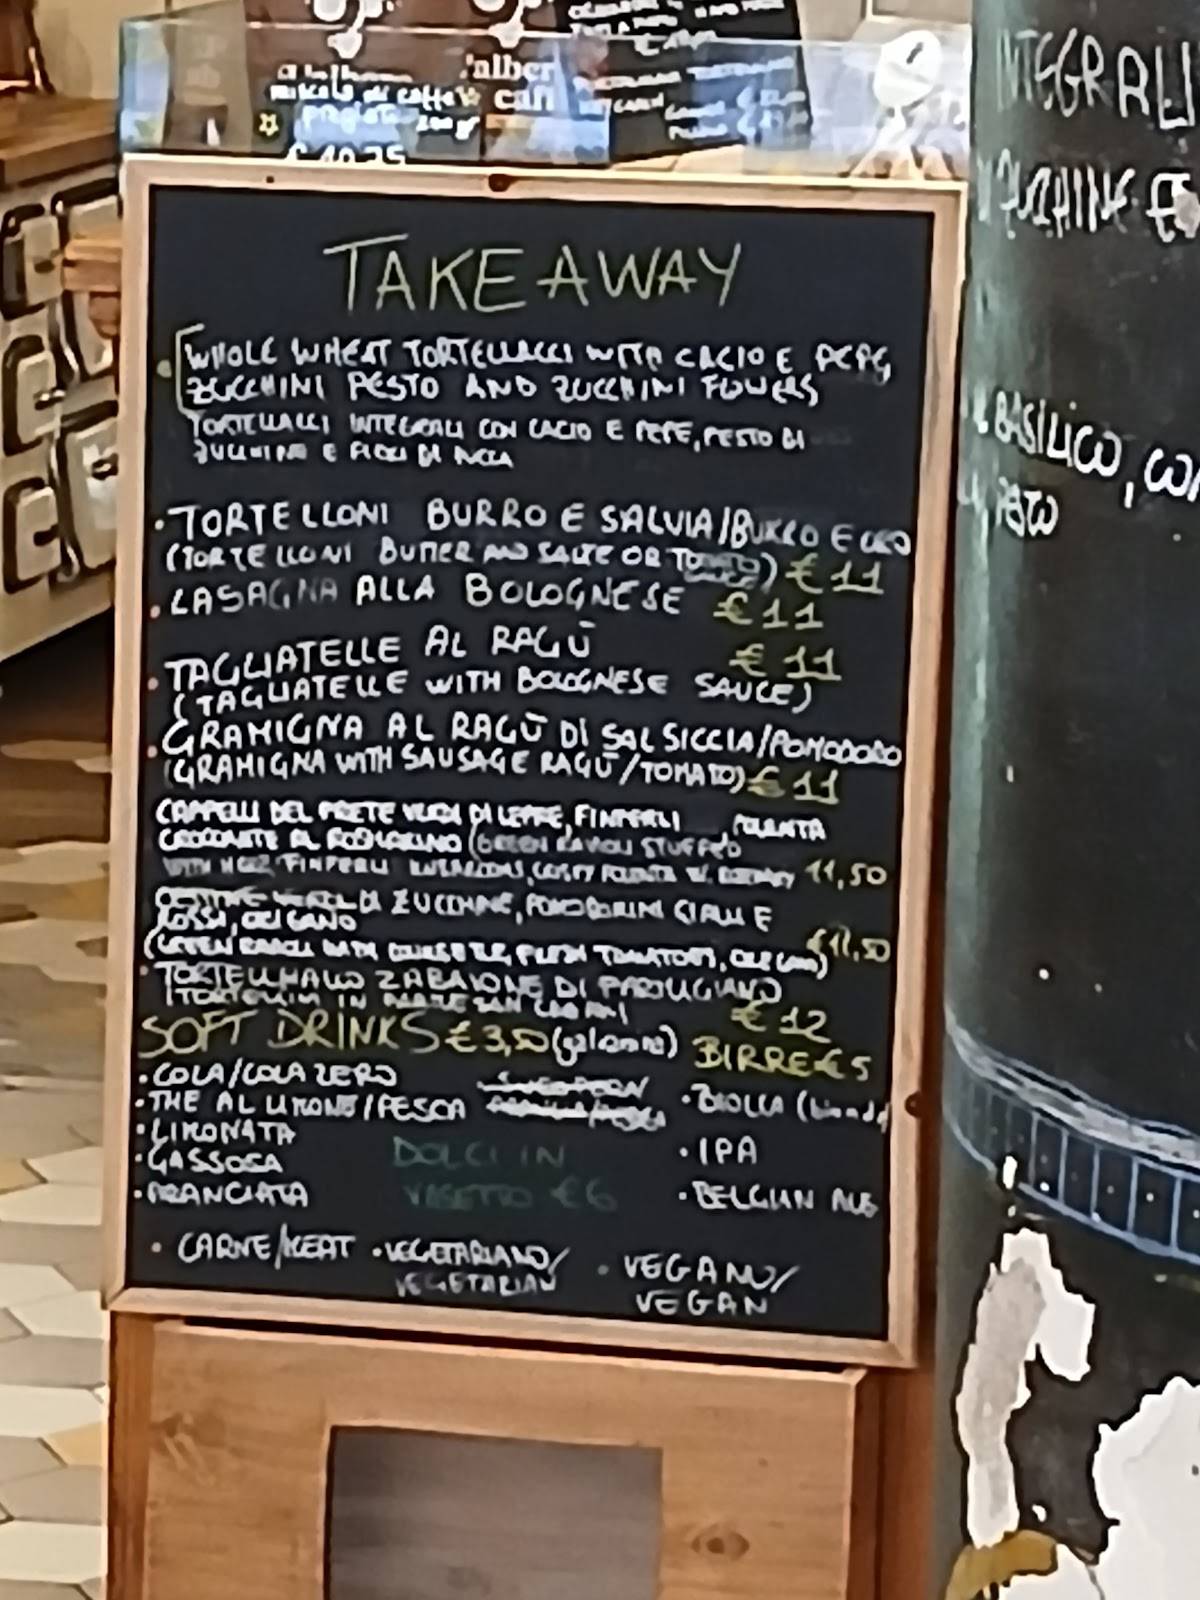 miscela di caffè
pregiata 200gr
€ 10,75
INTEGRALI
ZUCCHINE €
BASILICO, CON
TAKE AWAY
• WHOLE WHEAT TORTELLACCI WITH CACIO E PEPE,
ZUCCHINI PESTO AND ZUCCHINI FLOWERS
TORTELLACCI INTEGRALI CON CACIO E PEPE, PESTO DI
ZUCCHINE E FIORI DI ZUCCA
• TORTELLONI BURRO E SALVIA/BURRO E ORO
(TORTELLONI BUTTER AND SALTE OR TOMATO SAUCE) € 11
• LASAGNA ALLA BOLOGNESE € 11
• TAGLIATELLE AL RAGÙ € 11
(TAGLIATELLE WITH BOLOGNESE SAUCE)
• GRAMIGNA AL RAGÙ DI SALSICCIA/POMODORO
(GRAMIGNA WITH SAUSAGE RAGÙ/TOMATO) € 11
CAPPELLI DEL PRETE VERDI DI LEPRE, FINFERLI, POLENTA
CROCCANTE AL ROSMARINO (GREEN RAVIOLI STUFFED
WITH FINFERLI 11,50
DI ZUCCHINE, POMODORINI GIALLI E
ROSSI, ORIGANO
(GREEN RAVIOLI WITH TOMATOES, OREGANO) € 11,50
• TORTELLINI ALLO ZABAIONE DI PARMIGIANO
(TORTELLINI IN € 12
SOFT DRINKS € 3,50 BIRRE € 5
• COLA/COLA ZERO
• THE AL LIMONE/PESCA • BIOLCA (bionda)
• LIMONATA
• GASSOSA DOLCI IN • IPA
• ARANCIATA VASETTO € 6 • BELGIAN ALE
• CARNE/MEAT • VEGETARIANO/ • VEGANO/
VEGETARIAN VEGAN